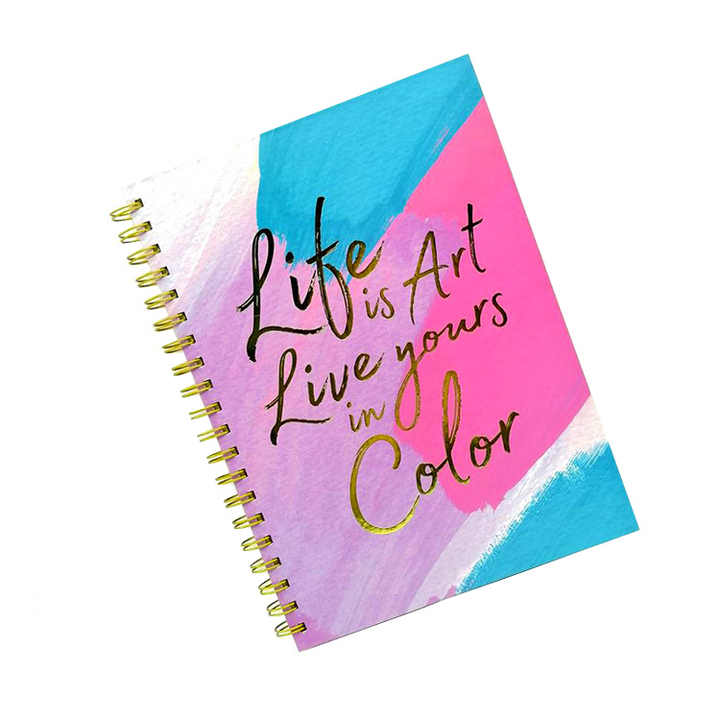 Life
is Art
Live yours
in
Color